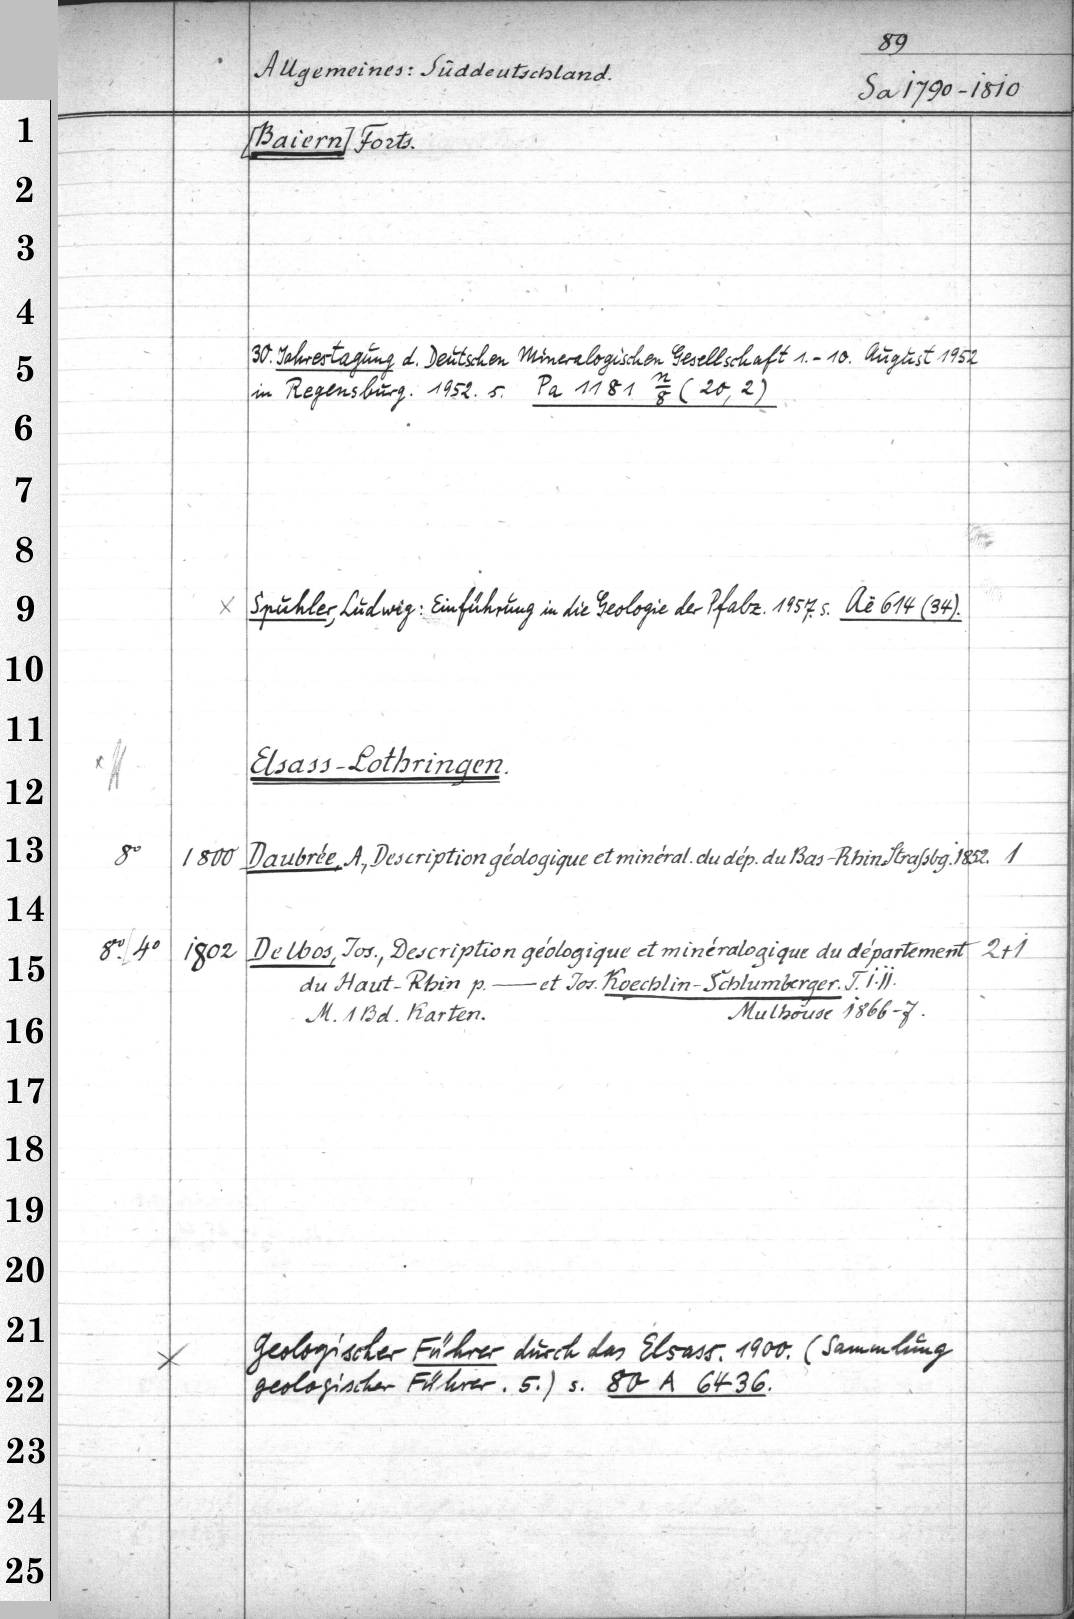 89
Allgemeines: Süddeutschland.
Sa 1790-1810
1
[Baiern] Forts.
2
3
4
30. Jahrestagung d. Deutschen Mineralogischen Gesellschaft 1.-10. August 1952
5
in Regensburg. 1952. s. Pa 1181 n/8 (20, 2)
6
7
8
9
× Spuhler, Ludwig: Einführung in die Geologie der Pfalz. 1957. s. Aë 614 (34).
10
11
Elsass-Lothringen.
12
13
8° 1800 Daubrée, A., Description géologique et minéral. du dép. du Bas-Rhin. Straßbg. 1852. 1
14
8°. [4° 1802 Delbos, Jos., Description géologique et minéralogique du département 2+1
15
du Haut-Rhin p. — et Jos. Koechlin-Schlumberger. T. I.II.
M. 1 Bd. Karten. Mulhouse 1866-7.
16
17
18
19
20
21
× Geologischer Führer durch das Elsass. 1900. (Sammlung
22
geologischer Führer. 5.) s. 80 A 6436.
23
24
25